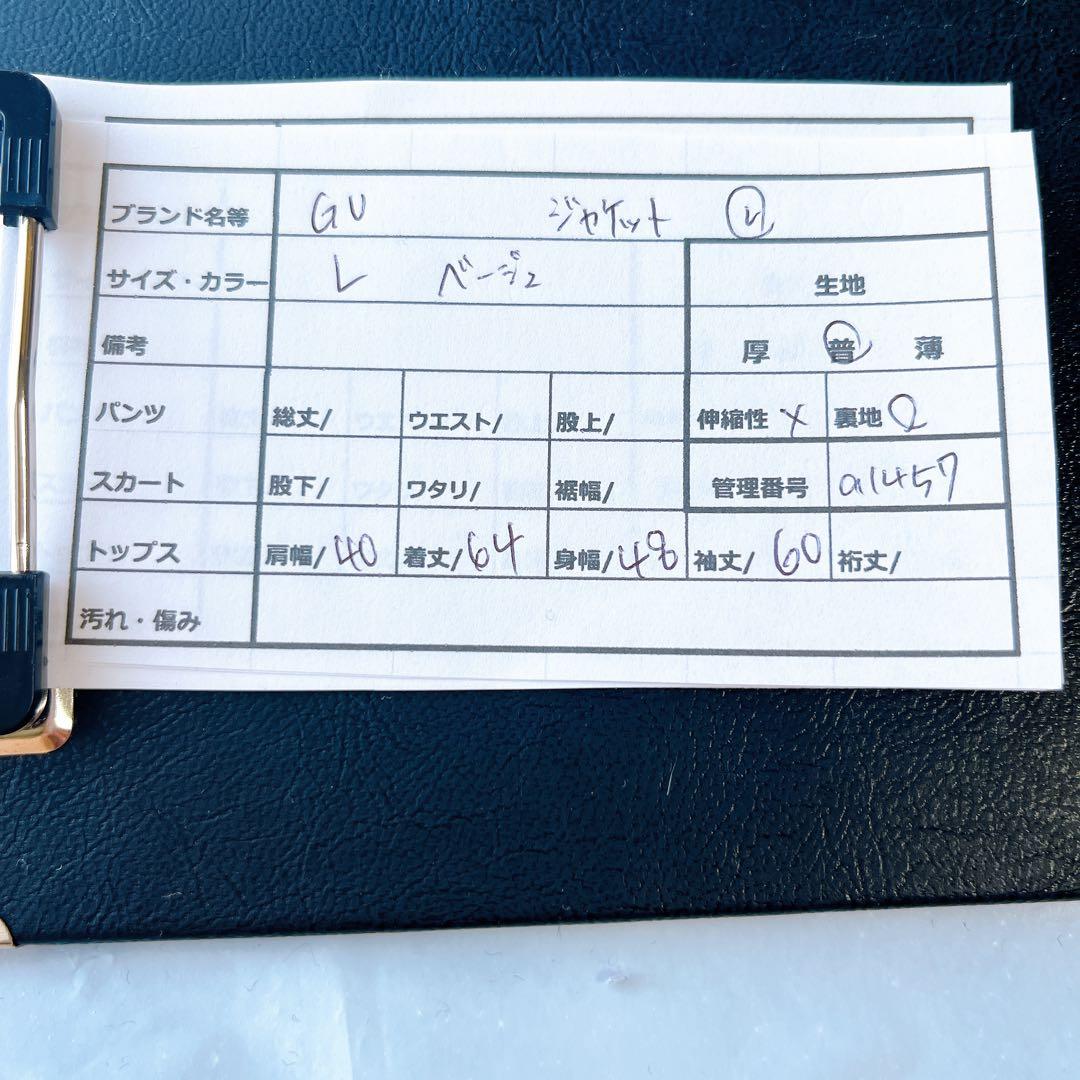 ブランド名等 GU ジャケット
サイズ・カラー L ベージュ 生地
備考 厚 普 薄
パンツ 総丈/ ウエスト/ 股上/ 伸縮性 × 裏地 ○
スカート 股下/ ワタリ/ 裾幅/ 管理番号 a1457
トップス 肩幅/40 着丈/64 身幅/48 袖丈/60 裄丈/
汚れ・傷み